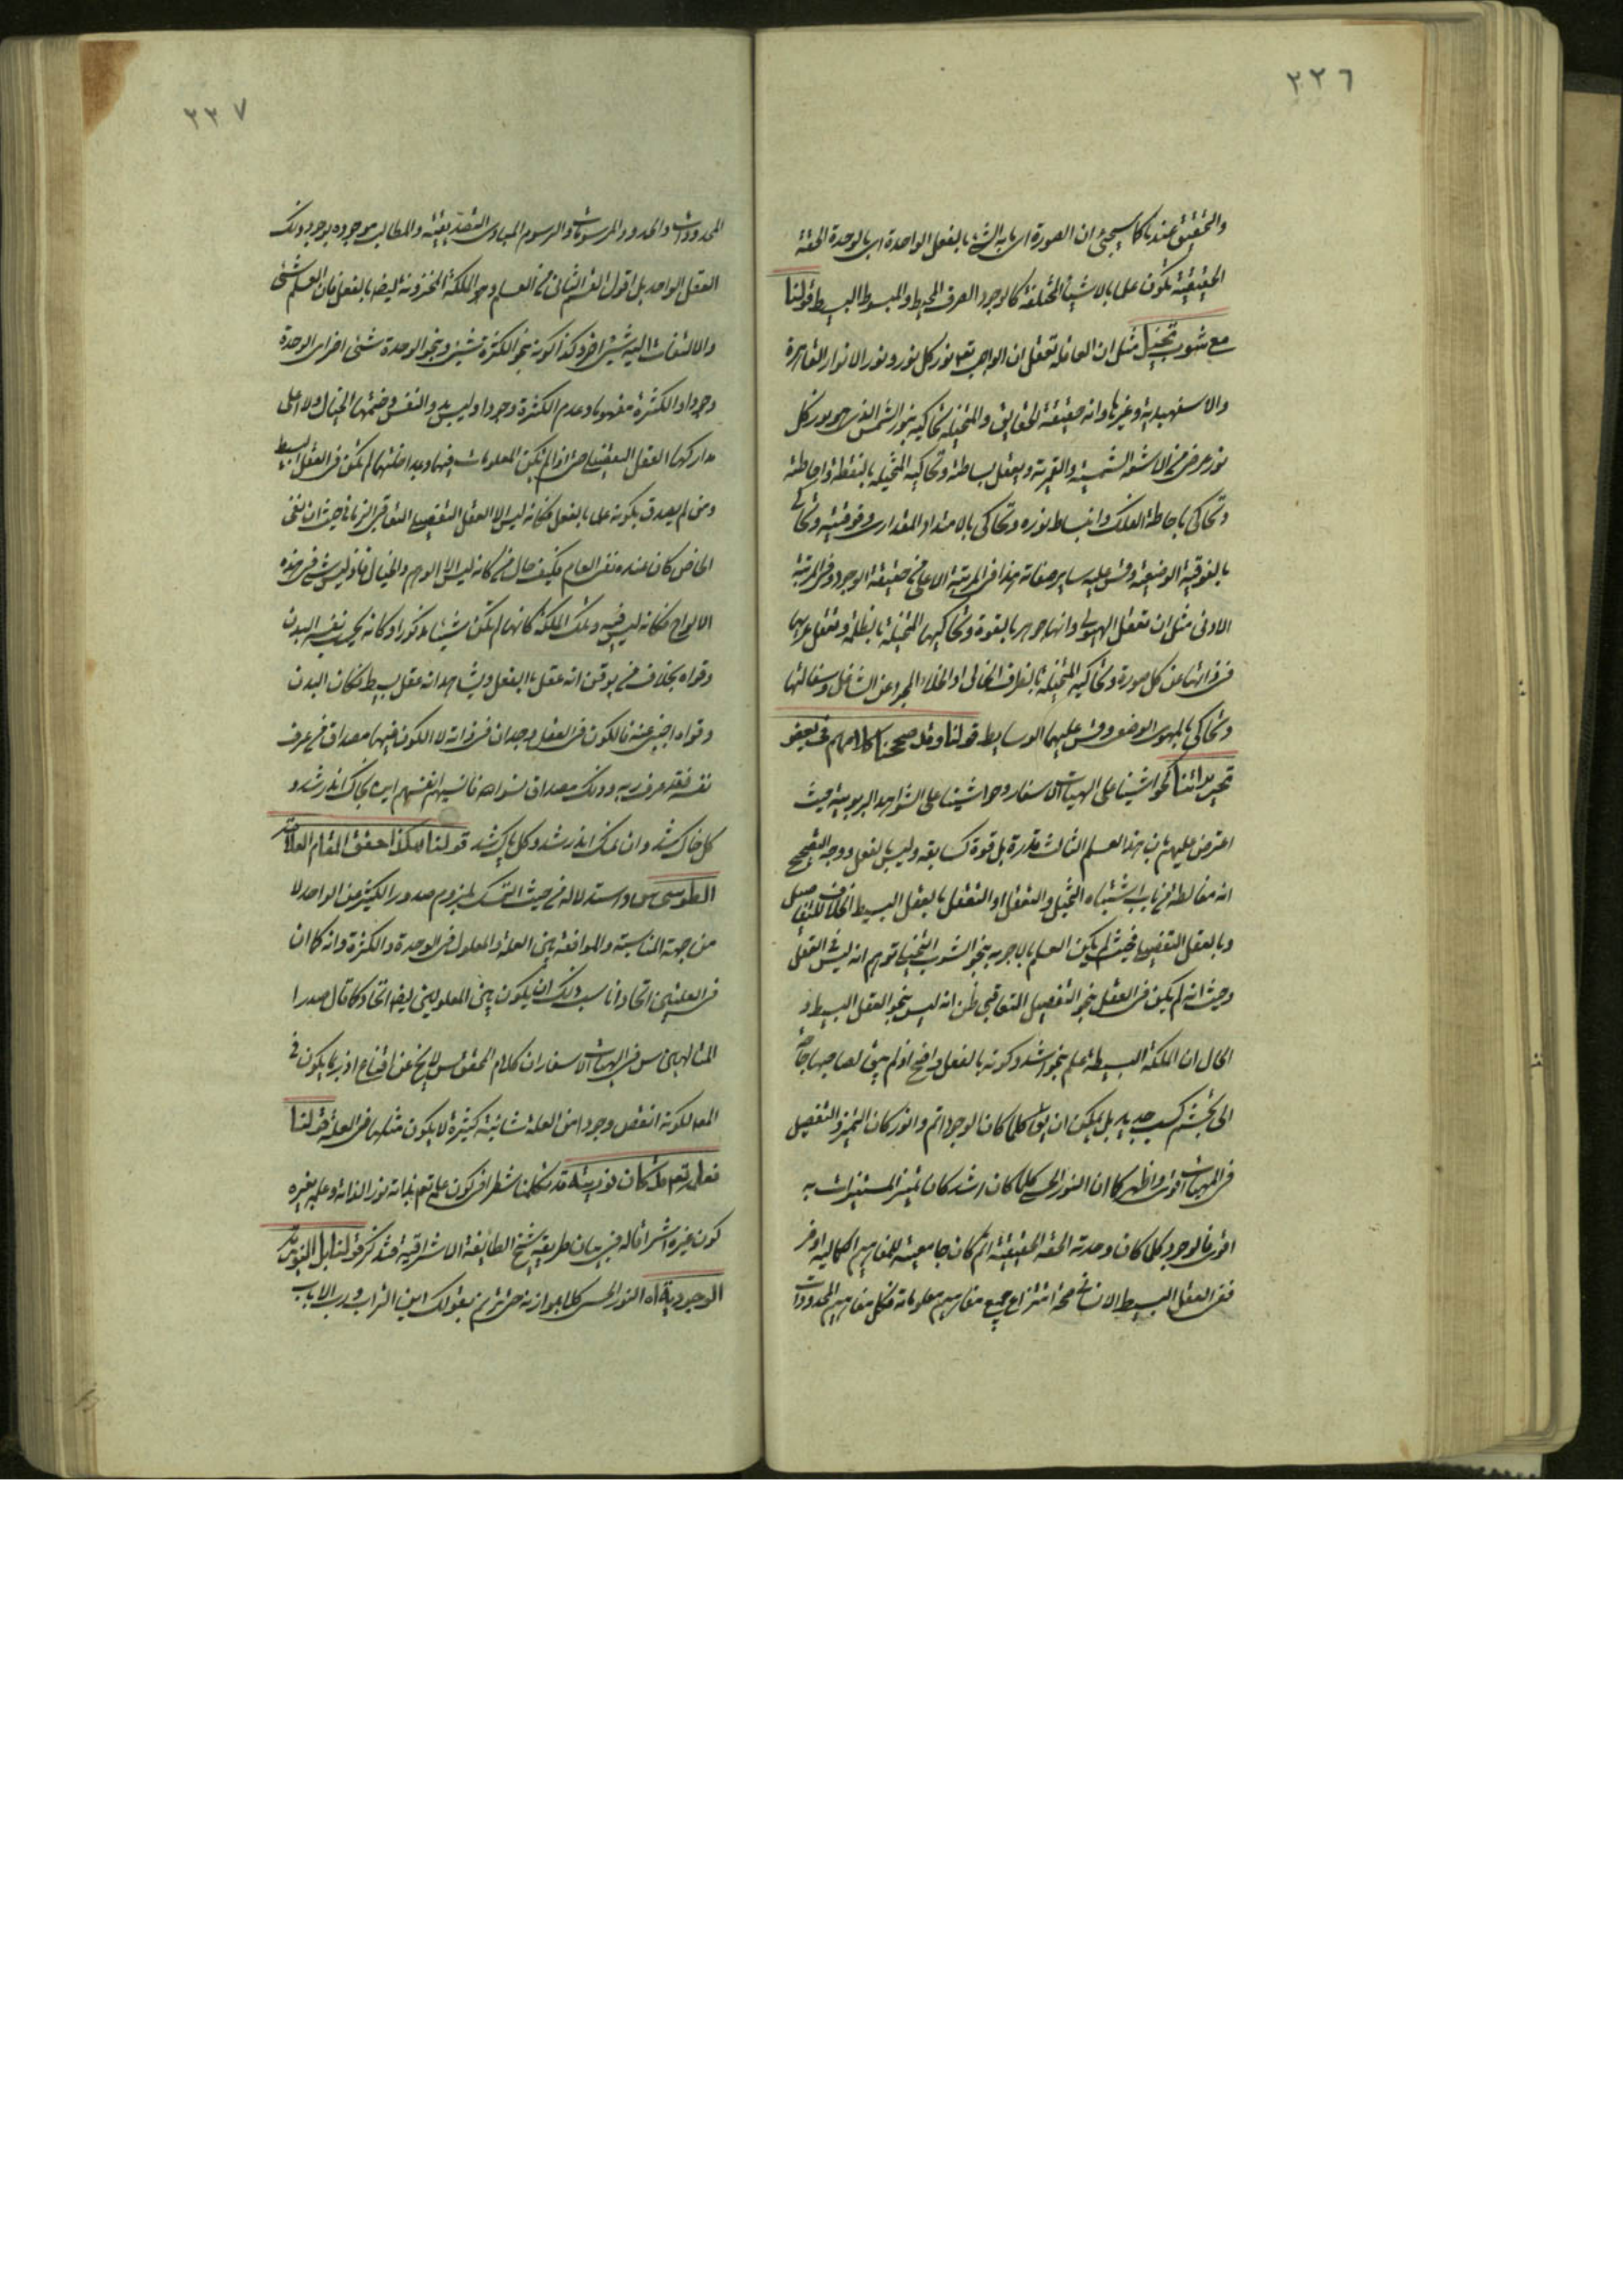 ٢٢٦
والتحقيق عندنا كما سيجيء ان الصورة اى ما به الشئ بالفعل الواحدة اى بالوحدة الحقة
الحقيقية تكون علما بالاشياء المختلفة كالوجود الصرف المحيط والمبسوط البسيط قولنا
مع شوب تخيل مثل ان العاقلة تعقل ان الواجب تعم نور كل نور ونور الانوار القاهرة
والاسفهبدية وغيرها وانه حقيقة الحقايق والمتخيلة تحاكيه بنور الشمس الذى هو نور كل
نور عرضى من الاشعة الشمسية والقمرية ويعقل بساطته وتحاكيه المتخيلة بالنقطة واحاطته
وتحاكى باحاطة الفلك وانبساط نوره وتحاكى بالامتداد المقدارى وفوقيته وتحاكى
بالفوقية الوضعية وقس عليه ساير صفاته هذا فى المرتبة الاعلى من حقيقة الوجود وفى المرتبة
الادنى مثل ان تعقل الهيولى وانها جوهر بالقوة وتحاكيها المتخيلة بالظلمة وتعقل عرائها
فى ذاتها عن كل صورة وتحاكيه المتخيلة بالظرف الخالى او الخلاء المجرد عن الشاغل وسفالتها
وتحاكى بالهوى الوضعى وقس عليهما الوسايط قولنا وقد صححنا كلامهم فى بعض
تحريراتنا كحواشينا على الهيات الاسفار وحواشينا على الشواهد الربوبية حيث
اعترض عليهم بان هذا العلم الثالث قدرة بل قوة كسابقه وليس بالفعل ووجه التصحيح
انه مغالطة من باب اشتباه التخيل والتعقل او التعقل بالعقل البسيط الخلاق للتفاصيل
وبالعقل التفصيلى فحيث لم يكن العلم بالاجوبة بنحو الشوب التخيلى توهم انه ليس فى العقل
وحيث انه لم يكن فى العقل بنحو التفصيل المتعاقبى ظن انه ليس بنحو العقل البسيط و
الحال ان الملكة البسيطة علم بنحو اشد وكونه بالفعل واضح اذ لم يبق لصاحبها حاجة
الى تجشم كسب جديد بل يمكن ان يق كلما كان الوجود اتم وانور كان التميز والتفصيل
فى المهيات اوفى واظهر كما ان النور الحسى كلما كان اشد كان تميز المستنيرات به
اقوى فالوجود كلما كان وحدته الحقة الحقيقية اتم كان جامعيته للمفاهيم الكمالية اوفر
ففى العقل البسيط الانسانى صحة انتزاع جميع مفاهيم معلوماته فكل مفاهيم المحدودات
٢٢٧
المحدودات والحدود والمرسومات والرسوم المبادى التصديقية والمطالب موجودة بوجود ذلك
العقل الواحد بل اقول القسم الثانى من العلم وهو الملكة المخزونة ايضا بالفعل فان العلم شئ
والالتفات اليه شئ اخر وكذا كونه بنحو الكثرة شئ وبنحو الوحدة شئ اخر اى الوحدة
وجودا والكثرة مفهوما وعدم الكثرة وجودا وليس يد والنفس وضمتها الخيال ولا اعلى
مداركها العقل التفصيلى حتى اذا لم يكن المعلومات فيهما وبمداخلتهما لم تكن فى العقل البسيط
ومن لم يصدق بكونه علما بالفعل فكانه ليس الا العقل التفصيلى التعاقبى الزمانى حيث ان نفى
الخاص كان عنده نفى العام فكيف حال من كانه ليس الا الوهم والخيال فاذ ليس شئ فى هذه
الالواح فكانه ليس فيه وتلك الملكة كانها لم تكن شيئا مذكورا وكانه يحسب نفسه البدن
وقواه بخلاف من يوقن انه عقل بالفعل ويشاهد انه عقل بسيط فكان البدن
وقواه اجنبى عنه فالكون فى العقل وجدان فى ذاته لا الكون فيهما مصداق من عرف
نفسه فقد عرف ربه وذلك مصداق نسوا الله فانسيهم انفسهم اين بخاك اندر شد و
كل خاك شد وان نمك اندر شد وكل پاك شد قولنا هكذا حقق المقام العلامة
الطوسى س واستدلاله من حيث التمسك بلزوم صدور الكثير عن الواحد لا
من جهة المناسبة والموافقة بين العلة والمعلول فى الوحدة والكثرة وانه كما ان
فى العلتين اتحادا ناسب ذلك ان يكون بين المعلولين ايضا اتحاد كما قال صدرا
المتالهين س فى الهيات الاسفار ان كلام المحقق س لا يخ عن اقناع اذ ربما يكون فى
المعا لكونه انقص وجودا من العلة شائبة كثيرة لا يكون مثلها فى العلة قولنا
فعلمه تعم كان نوريته قد تكلمنا شطرا فى كون علمه تعم بذاته نور الذاته وعلمه بغيره
كون غيره اشراقا له فى بيان طريقة شيخ الطائفة الاشراقية فتذكر قولنا بل النورية
الوجودية اه النور الحسى كلما يوازنه حتى يتم بقولك اين التراب ورب الارباب